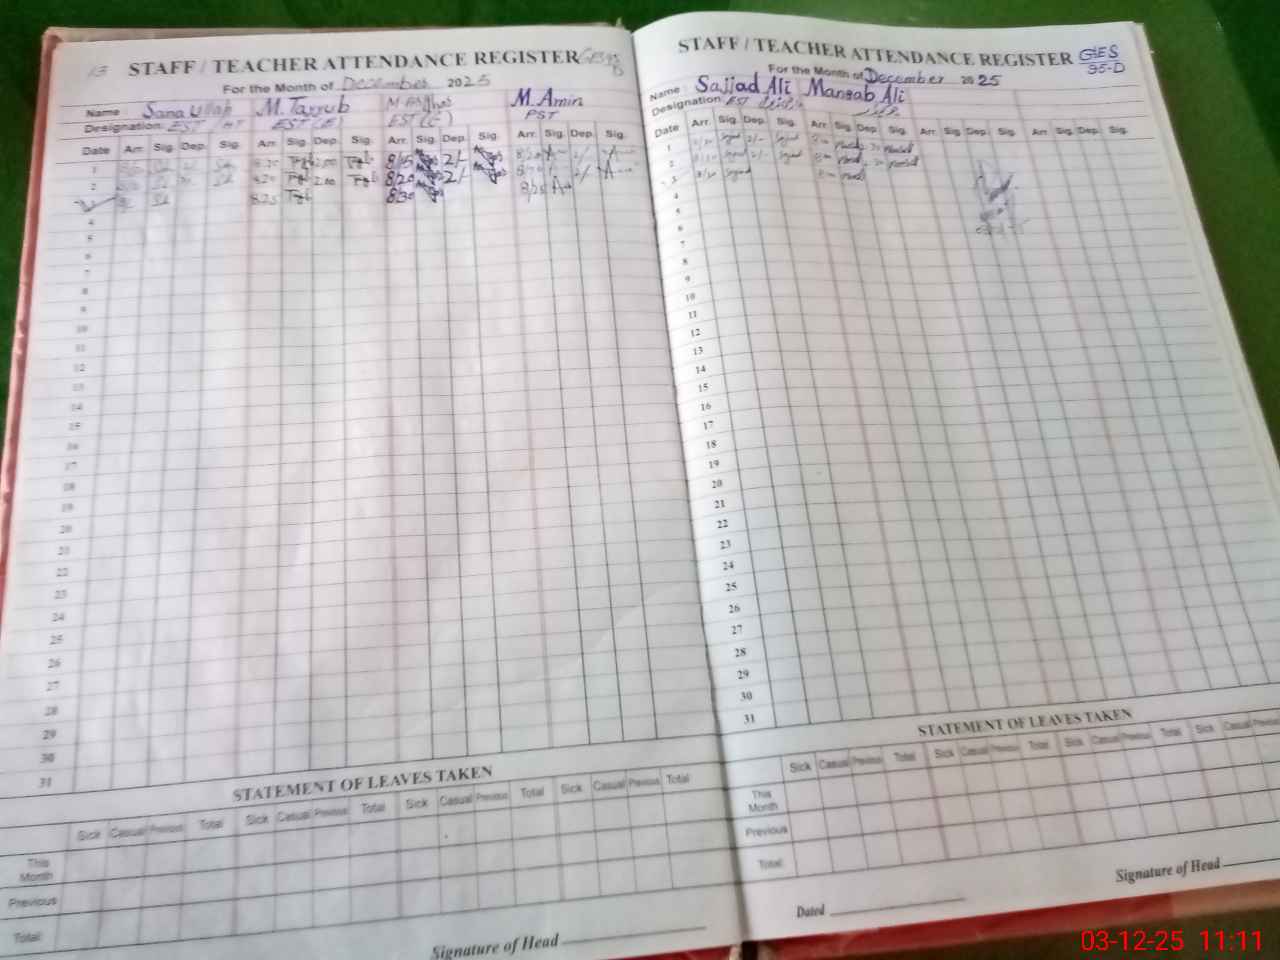 13 STAFF / TEACHER ATTENDANCE REGISTER
For the Month of December 2025
Name Sana Ullah M. Tayyub M. Amin
Designation: EST / HT EST (E) EST (E) PST
Date Arr. Sig. Dep. Sig. Arr. Sig. Dep. Sig. Arr. Sig. Dep. Sig. Arr. Sig. Dep. Sig.
1 8.20 2.00 8/15 2/- 8/20 2/-
2 8.20 2.00 8/20 2/-
8.25 8/30 8/25
4
5
6
7
8
9
10
11
12
13
14
15
16
17
18
19
20
21
22
23
24
25
26
27
28
29
30
31
STATEMENT OF LEAVES TAKEN
Sick Casual Previous Total Sick Casual Previous Total Sick Casual Previous Total Sick Casual Previous Total
This Month
Previous
Total
Signature of Head
STAFF / TEACHER ATTENDANCE REGISTER GES
95-D
For the Month of December 2025
Name : Sajjad Ali Mansab Ali
Designation: EST
Date Arr. Sig. Dep. Sig. Arr. Sig. Dep. Sig. Arr. Sig. Dep. Sig. Arr. Sig. Dep. Sig.
1 8/20 2/-
2 8/20 2/-
3 8/20
4
5
6
7
8
9
10
11
12
13
14
15
16
17
18
19
20
21
22
23
24
25
26
27
28
29
30
31
STATEMENT OF LEAVES TAKEN
Sick Casual Previous Total Sick Casual Previous Total Sick Casual Previous Total Sick Casual Previous
This Month
Previous
Total
Signature of Head
Dated
03-12-25 11:11